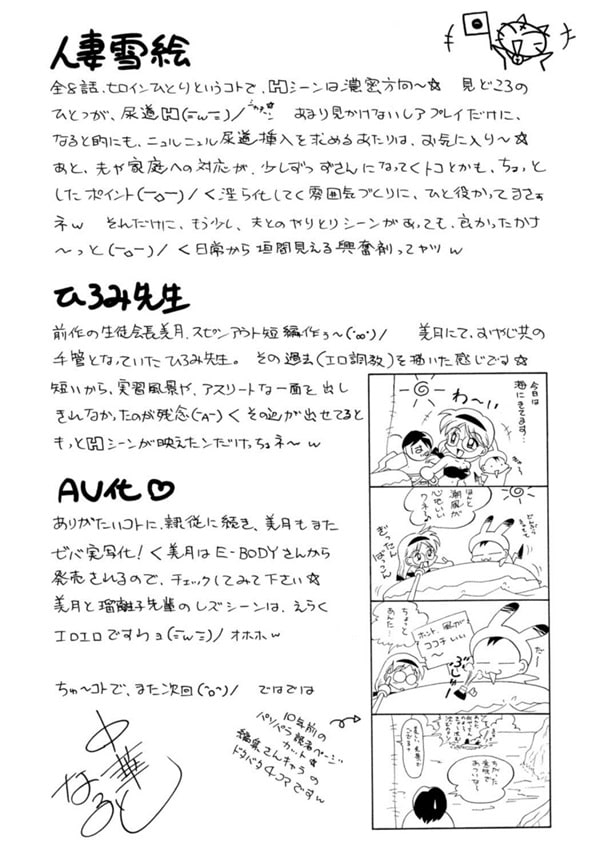 人妻雪絵
全8話、ヒロインひとりというコトで、Hシーンは濃密方向〜☆ 見どころの
ひとつが、尿道H(=w=)/ あまり見かけないレアプレイだけに、
なると的にも、ニュルニュル尿道挿入を求めるあたりは、お気に入り〜☆
あと、夫や家庭への対応が、少しずつずさんになってくトコとかも、ちょっと
したポイント(ーoー)/く淫ら化してく雰囲気づくりに、ひと役かってまさぁ
ネw それだけに、もう少し、夫とのやりとりシーンがあっても、良かったかな
〜っと(ーoー)/く日常から垣間見える興奮剤ってヤツw
ひろみ先生
前作の生徒会長美月、スピンアウト短編作ぅ〜(^oo^)/ 美月にて、おやじ共の
手管となっていたひろみ先生。その過去(エロ調教)を描いた感じです☆
短いから、実習風景や、アスリートな一面を出し
きれなかったのが残念(ーAー)くその辺が出せてると
もっとHシーンが映えたンだけっちょネ〜w
AV化♡
ありがたいコトに、隷従に続き、美月もまた
ぜバ実写化!く美月はE-BODYさんから
発売されるので、チェックしてみて下さい☆
美月と瑠璃子先輩のレズシーンは、えらく
エロエロですわョ(=w=)/オホホw
ちゅ〜コトで、また次回(^o^)/ ではでは
中華
なると
10年前の
パソパラ読者ページ
カット☆
編集さんキャラの
ドタバタ4コマですw
今日は
海にきてます…
わ〜い
ほんと
潮風が
心地いい
わネ♪
ぎったん
ばっこん
ちょっと
あんた…
ホント、風が
ココチいい
〜
だ〜